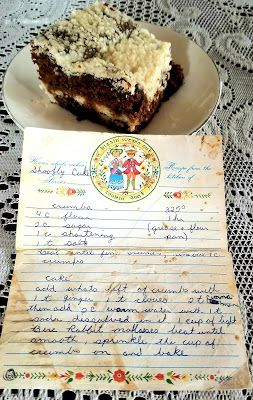 Here's what's cookin'
Recipe from the
Shoofly Cake
kitchen of
crumbs 325°
4 c flour 1 hr
2 c sugar (grease & flour
1 c shortening pan)
1 t salt
beat until fine crumbs, reserve 1 c
crumbs
cake
add whats left of crumbs with
1 t ginger 1 t cloves 2 t cinnamon
them add 2 c warm water with 1 t
soda dissolved in it 1 cup of light
Brer Rabbit molasses beat until
smooth, sprinkle the cup of
crumbs on and bake